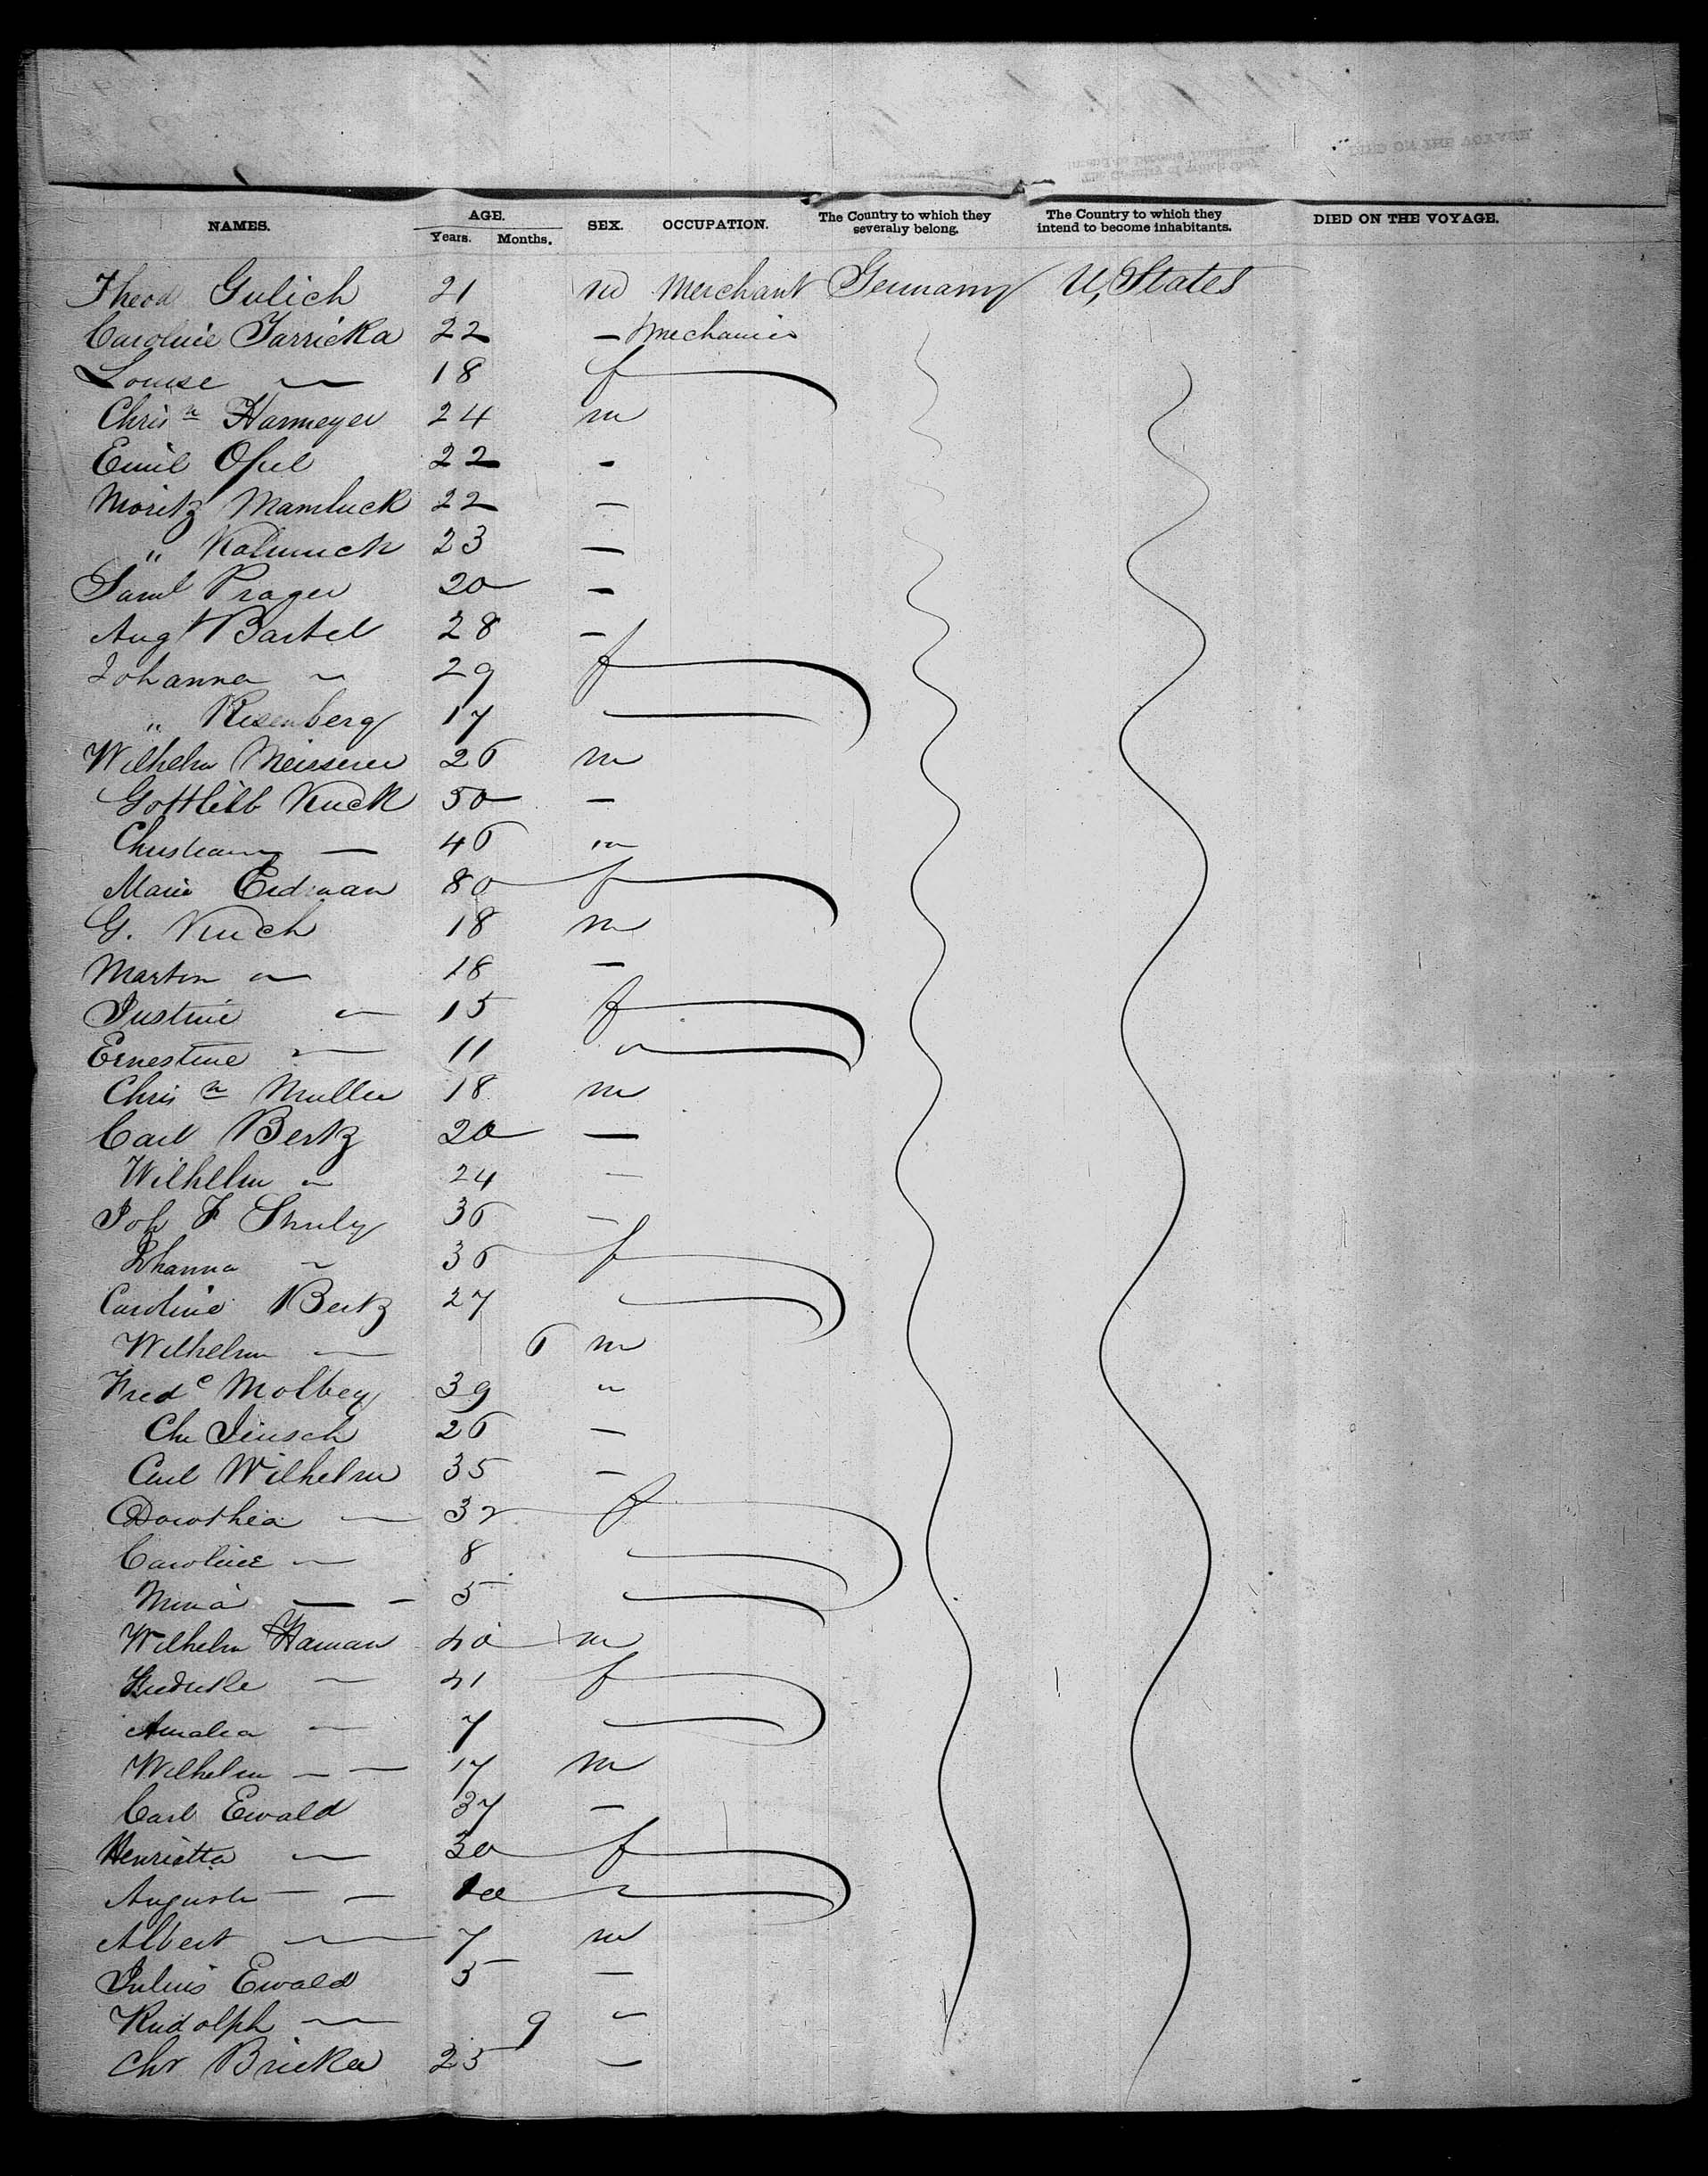 NAMES. AGE. Years. Months. SEX. OCCUPATION. The Country to which they severally belong. The Country to which they intend to become inhabitants. DIED ON THE VOYAGE.
Theod Gulich 21 m Merchant Germany U, States
Caroline Jarricka 22 — mechanic
Louise — 18 f
Chris n Harmeyer 24 m
Emil Opel 22 -
Moritz Mamluck 22 —
" Kalmuck 23 —
Saml Prager 20 -
Augt Bartel 28 —
Johanna ~ 29 f
" Risenberg 17 —
Wilhelm Meisserer 26 m
Gottlieb Kuck 50 —
Christian — 46 m
Marie Erdman 80 f
G. Kuch 18 m
Martin — 18 —
Justine — 15 f
Ernestine — 11 —
Chris n Muller 18 m
Carl Bertz 20 —
Wilhelm — 24 —
Joh F 36 —
Johanna ~ 36 f
Caroline Bertz 27 —
Wilhelm — 6 m
Fred c Molbey 39 "
Chr 26 —
Carl Wilhelm 35 —
Dorothea — 32 f
Caroline — 8 —
Mina — - 5 —
Wilhelm Haman 40 m
— 41 f
Amalia — 7 —
Wilhelm — — 17 m
Carl Ewald 37 —
Henrietta — 30 f
Auguste — — 10 —
Albert — 7 m
Julius Ewald 5 —
Rudolph — 9 ~
Chr Bricker 25 —